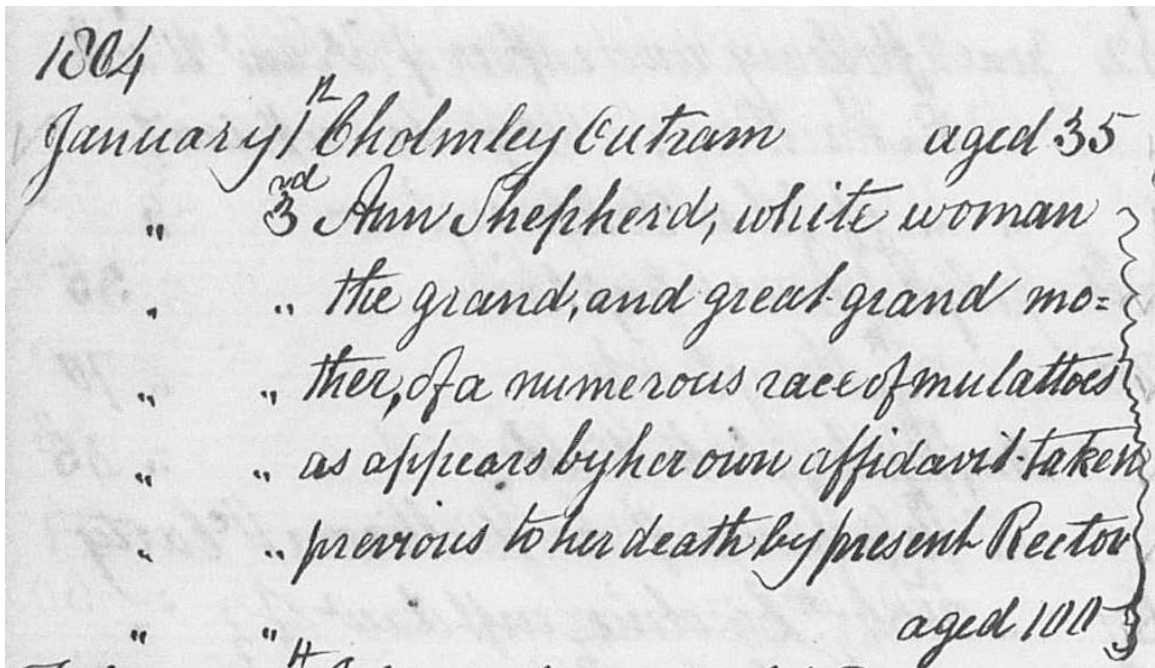 1804
January 1st Cholmley Outram aged 35
" 3rd Ann Shepherd, white woman
" " the grand, and great-grand mo=
" " ther, of a numerous race of mulattoes
" " as appears by her own affidavit taken
" " previous to her death by present Rector
" " aged 100